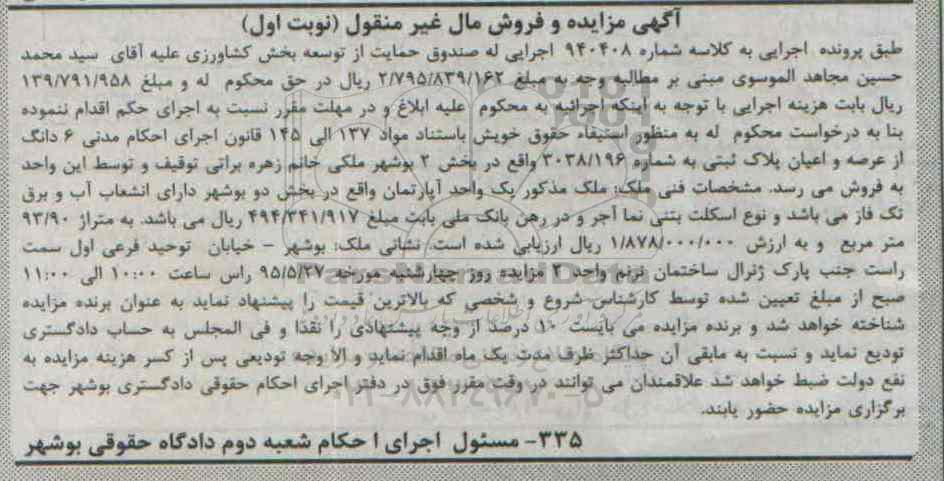 آگهی مزایده و فروش مال غیر منقول (نوبت اول)
طبق پرونده اجرایی به کلاسه شماره ۹۴۰۴۰۸ اجرایی له صندوق حمایت از توسعه بخش کشاورزی علیه آقای سید محمد
حسین مجاهد الموسوی مبنی بر مطالبه وجه به مبلغ ۲/۷۹۵/۸۳۹/۱۶۲ ریال در حق محکوم له و مبلغ ۱۳۹/۷۹۱/۹۵۸
ریال بابت هزینه اجرایی با توجه به اینکه اجرائیه به محکوم علیه ابلاغ و در مهلت مقرر نسبت به اجرای حکم اقدام ننموده
بنا به درخواست محکوم له به منظور استیفاء حقوق خویش باستناد مواد ۱۳۷ الی ۱۴۵ قانون اجرای احکام مدنی ۶ دانگ
از عرصه و اعیان پلاک ثبتی به شماره ۳۰۳۸/۱۹۶ واقع در بخش ۲ بوشهر ملکی خانم زهره براتی توقیف و توسط این واحد
به فروش می رسد. مشخصات فنی ملک: ملک مذکور یک واحد آپارتمان واقع در بخش دو بوشهر دارای انشعاب آب و برق
تک فاز می باشد و نوع اسکلت بتنی نما آجر و در رهن بانک ملی بابت مبلغ ۴۹۴/۳۴۱/۹۱۷ ریال می باشد. به متراژ ۹۳/۹۰
متر مربع و به ارزش ۱/۸۷۸/۰۰۰/۰۰۰ ریال ارزیابی شده است. نشانی ملک: بوشهر - خیابان توحید فرعی اول سمت
راست جنب پارک ژنرال ساختمان ترنم واحد ۲ مزایده روز چهارشنبه مورخه ۹۵/۵/۲۷ راس ساعت ۱۰:۰۰ الی ۱۱:۰۰
صبح از مبلغ تعیین شده توسط کارشناس شروع و شخصی که بالاترین قیمت را پیشنهاد نماید به عنوان برنده مزایده
شناخته خواهد شد و برنده مزایده می بایست ۱۰ درصد از وجه پیشنهادی را نقدا و فی المجلس به حساب دادگستری
تودیع نماید و نسبت به مابقی آن حداکثر ظرف مدت یک ماه اقدام نماید و الا وجه تودیعی پس از کسر هزینه مزایده به
نفع دولت ضبط خواهد شد علاقمندان می توانند در وقت مقرر فوق در دفتر اجرای احکام حقوقی دادگستری بوشهر جهت
برگزاری مزایده حضور یابند.
۳۳۵- مسئول اجرای ا حکام شعبه دوم دادگاه حقوقی بوشهر
ParsNamadData
۰۲۱-۸۸۳۴۹۶۷۰-۵